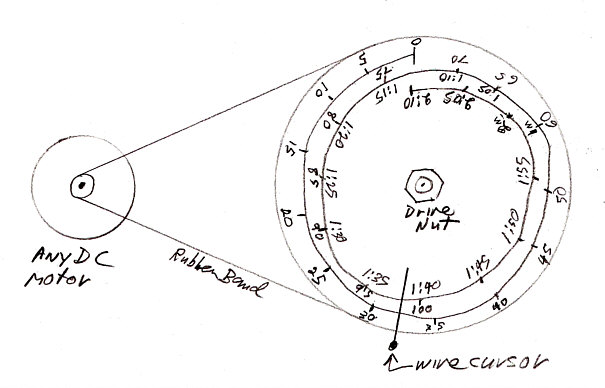 0
5
10
15
20
25
30
35
40
45
50
60
65
70
75
80
85
90
95
1:00
1:05
1:10
1:15
1:20
1:25
1:30
1:35
1:40
1:45
1:50
1:55
2:05
2:10
Drive
Nut
ANY DC
Motor
Rubber Band
wire cursor